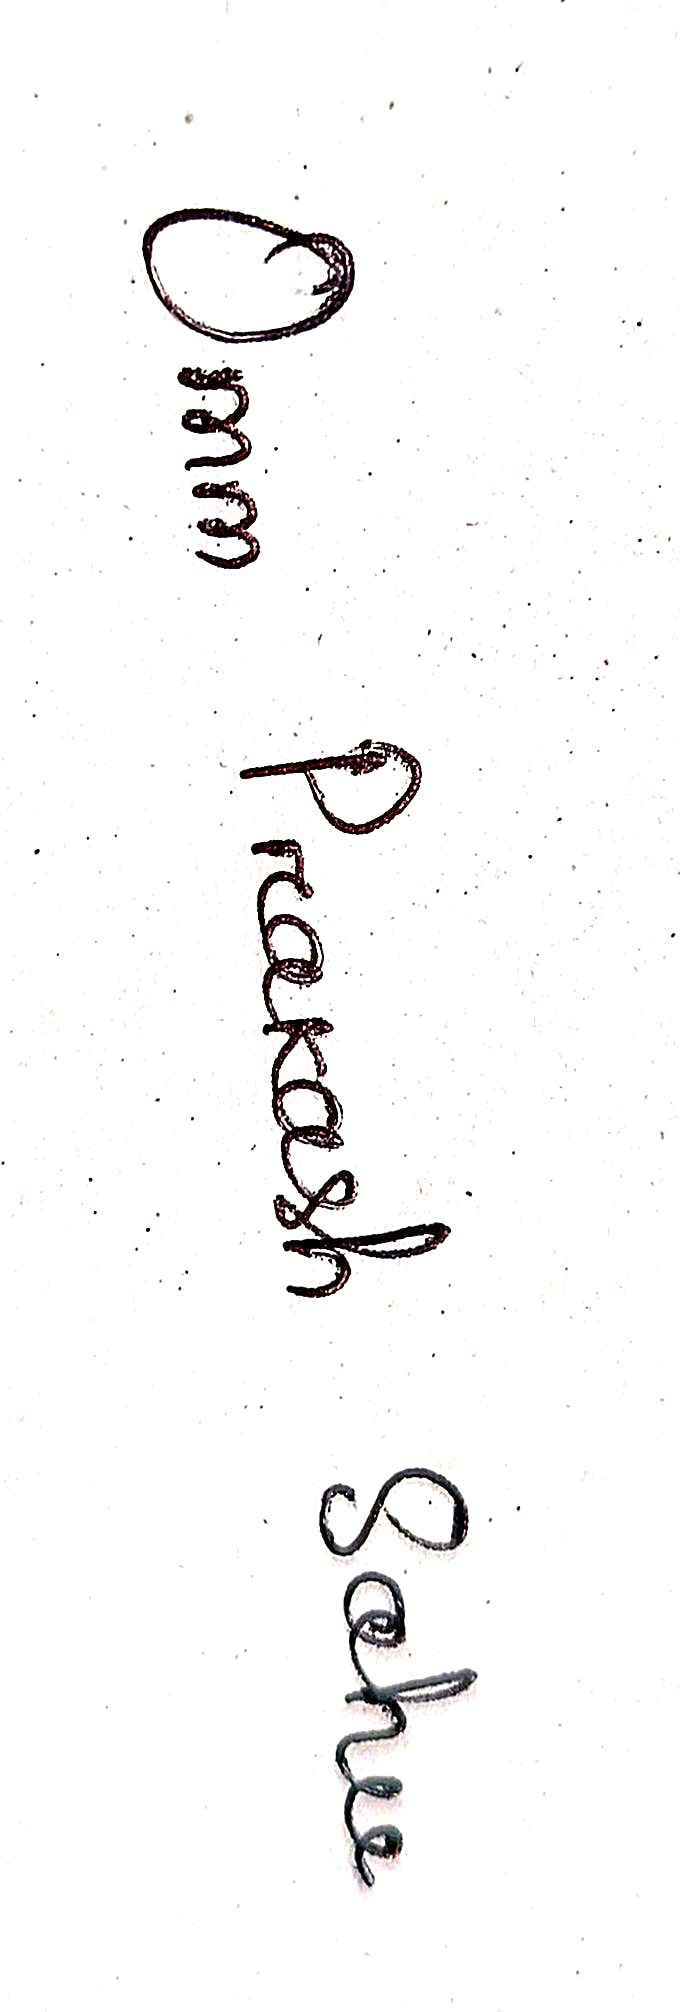 Omm Prakash Sahu